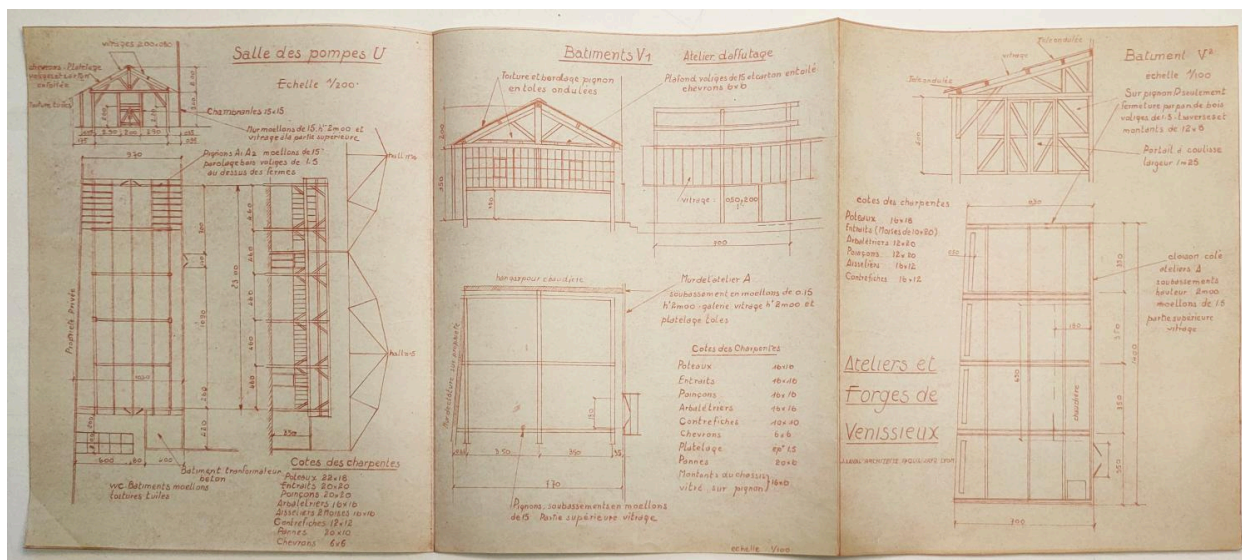 Salle des pompes U
Echelle 1/200
vitrages 200x080
chevrons - Platelage
voliges et sur tige
Toiture tuiles
Charpentes 15x15
Mur moellons de 15. h° 2m00 et
vitrage à la partie supérieure
Pignons A1 A2 moellons de 15
bois voliges de 1.5
au dessus des fermes
970
Propriété Privée
2500
260
260
260
260
260
260
220
350
600
80
400
Batiment transformateur
beton
WC. Batiments moellons
toitures tuiles
Cotes des charpentes
Poteaux 22x18
Entraits 20x20
Poinçons 20x20
Arbalétriers 16x16
Aisseliers 2 Moises 10x10
Contrefiches 12x12
Pannes 20x10
Chevrons 6x6
Batiments V1
Toiture et bardage pignon
en toles ondulées
Atelier d'affutage
Plafond voliges de 15 et carton entoilé
chevrons 6x6
200
350
vitrage :
150x200
300
hangar pour chaudière
Mur de l'atelier A
soubassement en moellons de 0.15
h° 2m00 - galerie vitrage h° 2m00 et
platelage toles
Cotes des Charpentes
Poteaux 16x16
Entraits 16x16
Poinçons 16x16
Arbalétriers 16x16
Contrefiches 10x10
Chevrons 6x6
Platelage epr 1.5
Pannes 20x6
Montants du chassis
vitré sur pignon 16x8
350
350
770
Pignons, soubassements en moellons
de 15 Partie supérieure vitrage
echelle 1/100
Tole ondulée
vitrage
Tole ondulée
Batiment V2
échelle 1/100
Sur pignon D seulement
fermeture par pan de bois
voliges de 1.5 - traverses et
montants de 12x8
Portail à coulisse
largeur 1m25
cotes des charpentes
Poteaux 16x18
Entraits (Moises de 10x20)
Arbalétriers 12x20
Poinçons 12x20
Aisseliers 16x12
Contrefiches 16x12
350
350
350
350
1400
150
chaudière
300
cloison coté
ateliers A
soubassements
hauteur 2m00
moellons de 15
partie supérieure
vitrage
Ateliers et
Forges de
Venissieux